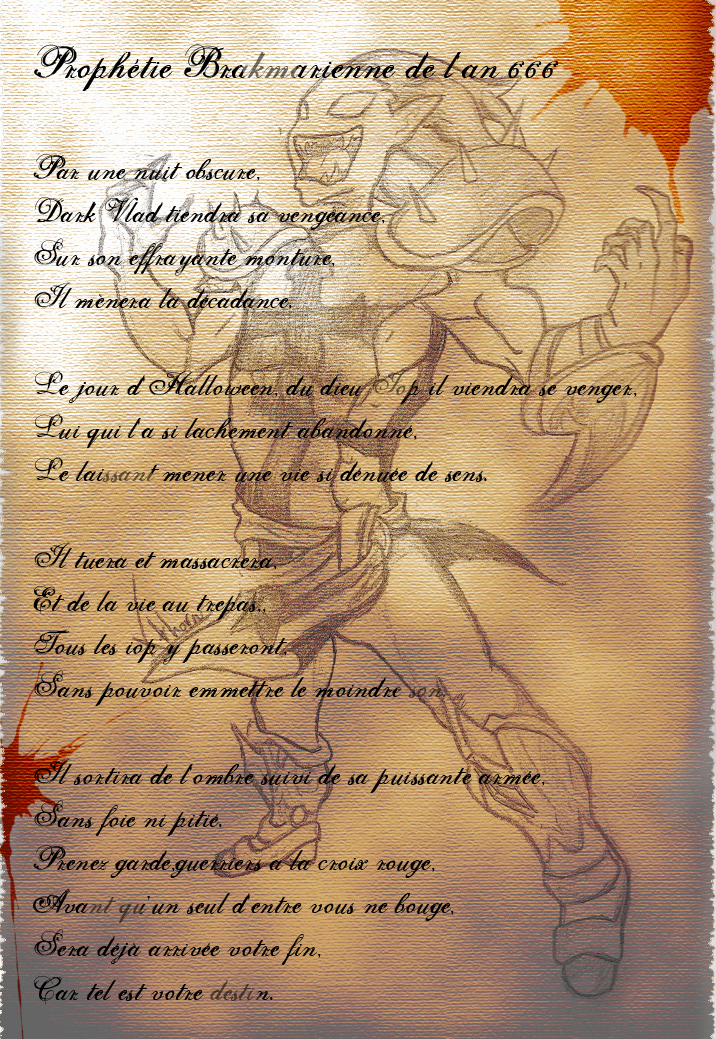 Prophétie Brakmarienne de l'an 666
Par une nuit obscure,
Dark Vlad tiendra sa vengeance,
Sur son effrayante monture,
Il mènera la décadance.
Le jour d'Halloween, du dieu Iop il viendra se venger,
Lui qui l'a si lachement abandonné,
Le laissant mener une vie si dénuée de sens.
Il tuera et massacrera,
Et de la vie au trepas,
Tous les iop y passeront,
Sans pouvoir emmettre le moindre son.
Il sortira de l'ombre suivi de sa puissante armée,
Sans foie ni pitié,
Prenez garde,guerriers a la croix rouge,
Avant qu'un seul d'entre vous ne bouge,
Sera déjà arrivée votre fin,
Car tel est votre destin.